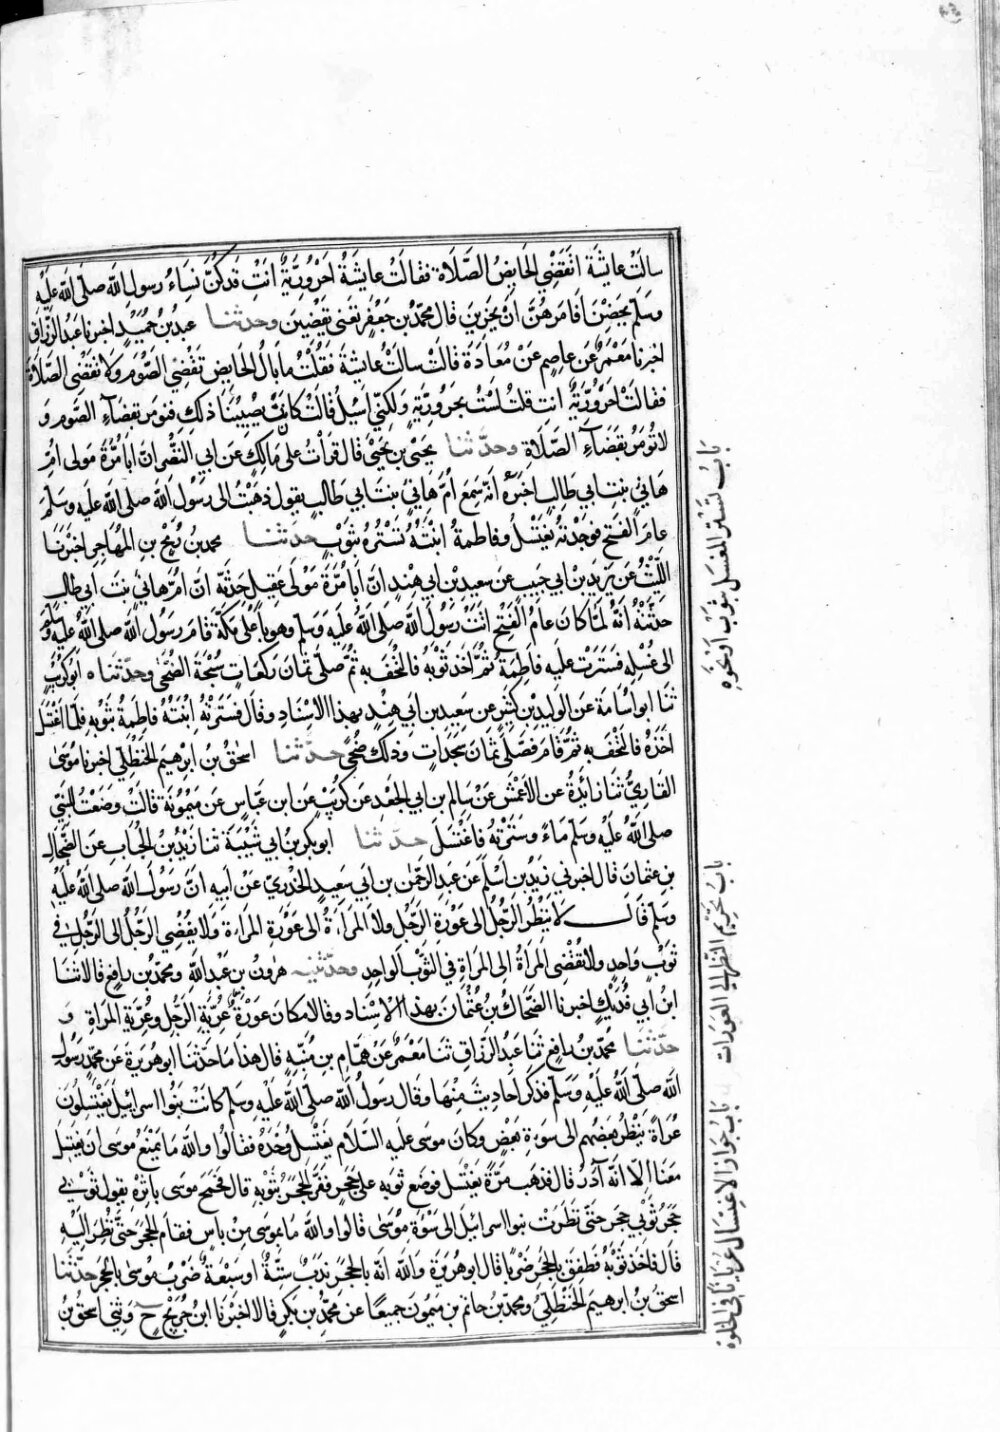 سالت عايشة اتقضي الحايض الصلاة فقالت عايشة احرورية انت قد كن نساء رسول الله صلى الله عليه
وسلم يحضن افامرهن ان يجزين قال محمد بن جعفر تعني يقضين وحدثنا عبد بن حميد اخبرنا عبد الرزاق
اخبرنا معمر عن عاصم عن معاذة قالت سالت عايشة فقلت ما بال الحايض تقضي الصوم ولا تقضي الصلاة
فقالت احرورية انت قلت لست بحرورية ولكني اسل قالت كان يصيبنا ذلك فنومر بقضاء الصوم و
لا نومر بقضاء الصلاة وحدثنا يحيى بن يحيى قال قرات على مالك عن ابي النضر ان ابا مرة مولى ام
هاني بنت ابي طالب اخبره انه سمع ام هاني بنت ابي طالب يقول ذهبت الى رسول الله صلى الله عليه وسلم
عام الفتح فوجدته يغتسل وفاطمة ابنته تستره بثوب حدثنا محمد بن رمح بن المهاجر اخبرنا
الليث عن يزيد بن ابي حبيب عن سعيد بن ابي هند ان ابا مرة مولى عقيل حدثه ان ام هاني بنت ابي طالب
حدثته انه لما كان عام الفتح اتت رسول الله صلى الله عليه وسلم وهو باعلى مكة قام رسول الله صلى الله عليه وسلم
الى غسله فسترت عليه فاطمة ثم اخذ ثوبه فالتحف به ثم صلى ثمان ركعات سبحة الضحى وحدثناه ابو كريب
ثنا ابو اسامة عن الوليد بن كثير عن سعيد بن ابي هند بهذا الاسناد وقال فسترته ابنته فاطمة بثوبه فلما اغتسل
اخذه فالتحف به ثم قام فصلى ثمان سجدات وذلك ضحى حدثنا اسحق بن ابرهيم الحنظلي اخبرنا موسى
القاري ثنا زائدة عن الاعمش عن سالم بن ابي الجعد عن كريب عن ابن عباس عن ميمونة قالت وضعت للنبي
صلى الله عليه وسلم ماء وسترته فاغتسل حدثنا ابو بكر بن ابي شيبة ثنا زيد بن الحباب عن الضحاك
بن عثمان قال اخبرني زيد بن اسلم عن عبد الرحمن بن ابي سعيد الخدري عن ابيه ان رسول الله صلى الله عليه
وسلم قال لا ينظر الرجل الى عورة الرجل ولا المراءة الى عورة المراءة ولا يفضي الرجل الى الرجل في
ثوب واحد ولا تفضي المراة الى المراة في الثوب الواحد وحدثنيه هرون بن عبد الله ومحمد بن رافع قالا ثنا
ابن ابي فديك اخبرنا الضحاك بن عثمان بهذا الاسناد وقالا مكان عورة عرية الرجل وعرية المراة و
حدثنا محمد بن رافع ثنا عبد الرزاق ثنا معمر عن همام بن منبه قال هذا ما حدثنا ابو هريرة عن محمد رسول
الله صلى الله عليه وسلم فذكر احاديث منها وقال رسول الله صلى الله عليه وسلم كانت بنوا اسرائيل يغتسلون
عراة ينظر بعضهم الى سوءة بعض وكان موسى عليه السلام يغتسل وحده فقالوا والله ما يمنع موسى ان يغتسل
معنا الا انه آدر قال فذهب مرة يغتسل فوضع ثوبه على حجر ففر الحجر بثوبه قال فجمح موسى باثره يقول ثوبي
حجر ثوبي حجر حتى نظرت بنوا اسرائيل الى سوءة موسى قالوا والله ما بموسى من باس فقام الحجر حتى نظر اليه
قال فاخذ ثوبه فطفق بالحجر ضربا قال ابو هريرة والله انه بالحجر ندب ستة او سبعة ضرب موسى بالحجر حدثنا
اسحق بن ابرهيم الحنظلي ومحمد بن حاتم بن ميمون جميعا عن محمد بن بكر قالا اخبرنا ابن جريج ح وثني اسحق بن
باب تستر المغتسل بثوب او نحوه
باب تحريم النظر الى العورات
باب جواز الاغتسال عريانا في الخلوة